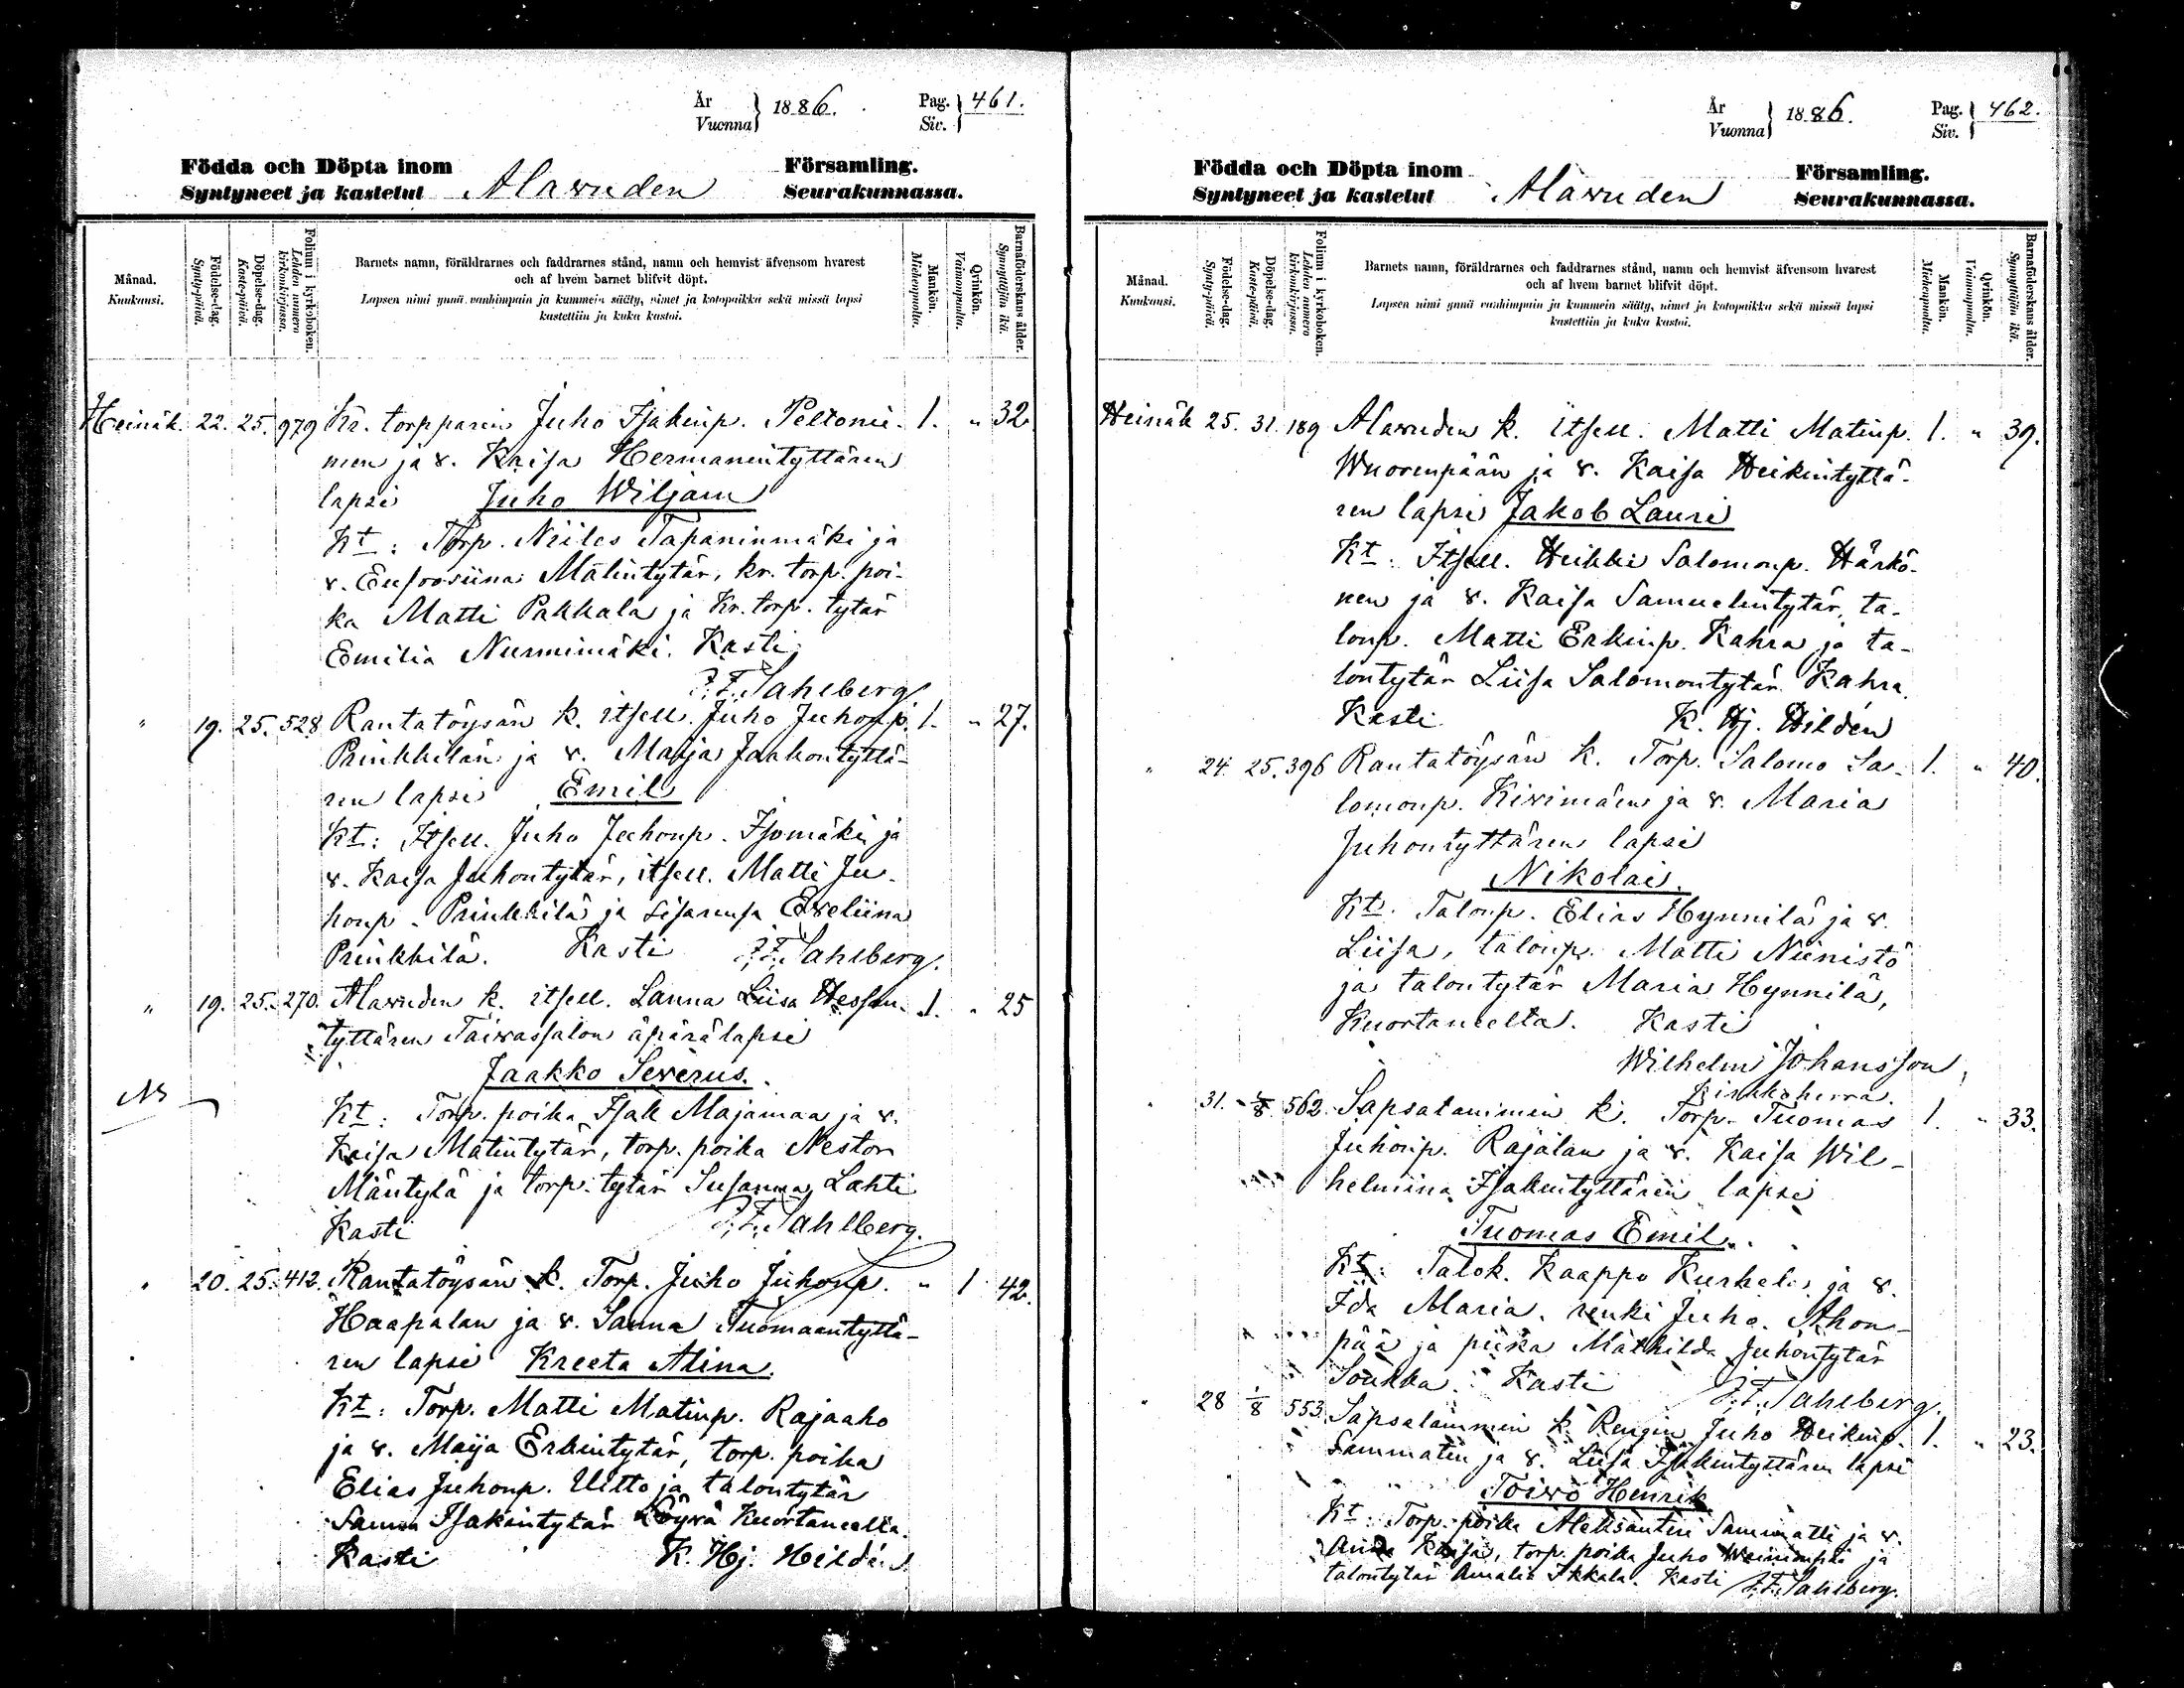 År
Vuonna
1886.
Pag.
Siv.
461.
Födda och Döpta inom
Syntyneet ja kastetut
Alawuden
Församling.
Seurakunnassa.
Månad.
Kuukausi.
Födelse-dag.
Synty-päivä.
Döpelse-dag.
Kaste-päivä.
Folium i kyrkoboken.
Lehden numero
kirkonkirjassa.
Barnets namn, föräldrarnes och faddrarnes stånd, namn och hemvist äfvensom hvarest
och af hvem barnet blifvit döpt.
Lapsen nimi ynnä vanhimpain ja kummein sääty, nimet ja kotopaikka sekä missä lapsi
kastettiin ja kuka kastoi.
Mankön.
Miehenpuolta.
Qvinkön.
Vaimonpuolta.
Barnaföderskans ålder.
Synnyttäjän ikä.
Heinäk. 22. 25. 979 Kr. torpparin Juho Isakinp. Peltonie- 1. " 32
men ja v. Kaisa Hermanintyttären
lapsi Juho Wiljam
Kt: Torp. Niiles Tapaninmäki ja
v. Eufrosiina Matintytär, kr. torp. poi-
ka Matti Pakkala ja Kr. torp. tytär
Emilia Nurmimäki. Kasti
F. F. Sahlberg
" 19. 25. 528 Rantatöysän k. itsell. Juho Juhonp. 1. " 27.
Prinkkilän ja v. Marja Jaakontyttä-
ren lapsi Emil
Kt: Itsell. Juho Juhonp. Isomäki ja
v. Kaisa Juhontytär, itsell. Matti Ju-
honp. Prinkkilä ja sisarensa Eveliina
Prinkkilä. Kasti F. F. Sahlberg.
" 19. 25. 270. Alawuden k. itsell. Sanna Liisa 1. " 25
tyttären Taiwassalon äpärälapsi
Jaakko Severus.
Kt: Torp. poika Isak Majamaa ja v.
Kaisa Matintytär, torp. poika Nestor
Mäntylä ja torp. tytär Susanna Lahti
Kasti F. F. Sahlberg.
" 20. 25. 412. Rantatöysän k. Torp. Juho Juhonp. " 1 42.
Haapalan ja v. Sanna Tuomaantyttä-
ren lapsi Kreeta Alina.
Kt: Torp. Matti Matinp. Rajaaho
ja v. Maija Erkintytär, torp. poika
Elias Juhonp. Uitto ja talontytär
Sanna Isakintytär Löyvä Kuortaneelta.
Kasti K. Hj. Hildén.
År
Vuonna
1886.
Pag.
Siv.
462.
Födda och Döpta inom
Syntyneet ja kastetut
Alawuden
Församling.
Seurakunnassa.
Månad.
Kuukausi.
Födelse-dag.
Synty-päivä.
Döpelse-dag.
Kaste-päivä.
Folium i kyrkoboken.
Lehden numero
kirkonkirjassa.
Barnets namn, föräldrarnes och faddrarnes stånd, namn och hemvist äfvensom hvarest
och af hvem barnet blifvit döpt.
Lapsen nimi ynnä vanhimpain ja kummein sääty, nimet ja kotopaikka sekä missä lapsi
kastettiin ja kuka kastoi.
Mankön.
Miehenpuolta.
Qvinkön.
Vaimonpuolta.
Barnaföderskans ålder.
Synnyttäjän ikä.
Heinäk 25. 31. 189 Alawuden k. itsell. Matti Matinp. 1. " 39.
Wuorenpään ja v. Kaisa Heikintyttä-
ren lapsi Jakob Lauri
Kt: Itsell. Heikki Salomonp. Härkö-
nen ja v. Kaisa Samuelintytär, ta-
lonp. Matti Erkinp. Kahra ja ta-
lontytär Liisa Salomontytär Kahra.
Kasti K. Hj. Hildén
" 24. 25. 396 Rantatöysän k. Torp. Salomo Sa- 1. " 40.
lomonp. Kivimäen ja v. Maria
Juhontyttären lapsi
Nikolai.
Kt: Talonp. Elias Hynnilä ja v.
Liisa, talonp. Matti Niinistö
ja talontytär Maria Hynnilä,
Kuortaneelta. Kasti
Wilhelm Johansson,
Kirkkoherra.
" 31. 1/8 562 Sapsalammin k. Torp. Tuomas 1. " 33.
Juhonp. Rajalan ja v. Kaisa Wil-
helmina Isakintyttären lapsi
Tuomas Emil.
Kt: Talok. Kaappo Kurkela ja v.
Ida Maria, renki Juho Ahon-
pää ja piika Mathilda Juhontytär
Soukka. Kasti F. F. Sahlberg.
" 28 1/8 553. Sapsalammin k. Rengin Juho Heikinp. 1. " 23.
Sammatin ja v. Liisa Isakintyttären lapsi
Toivo Henrik
Kt: Torp. poika Aleksanteri Sammatti ja v.
Anna Kaisa, torp. poika Juho ja
talontytär Amalia Ikkala. Kasti F. F. Sahlberg.